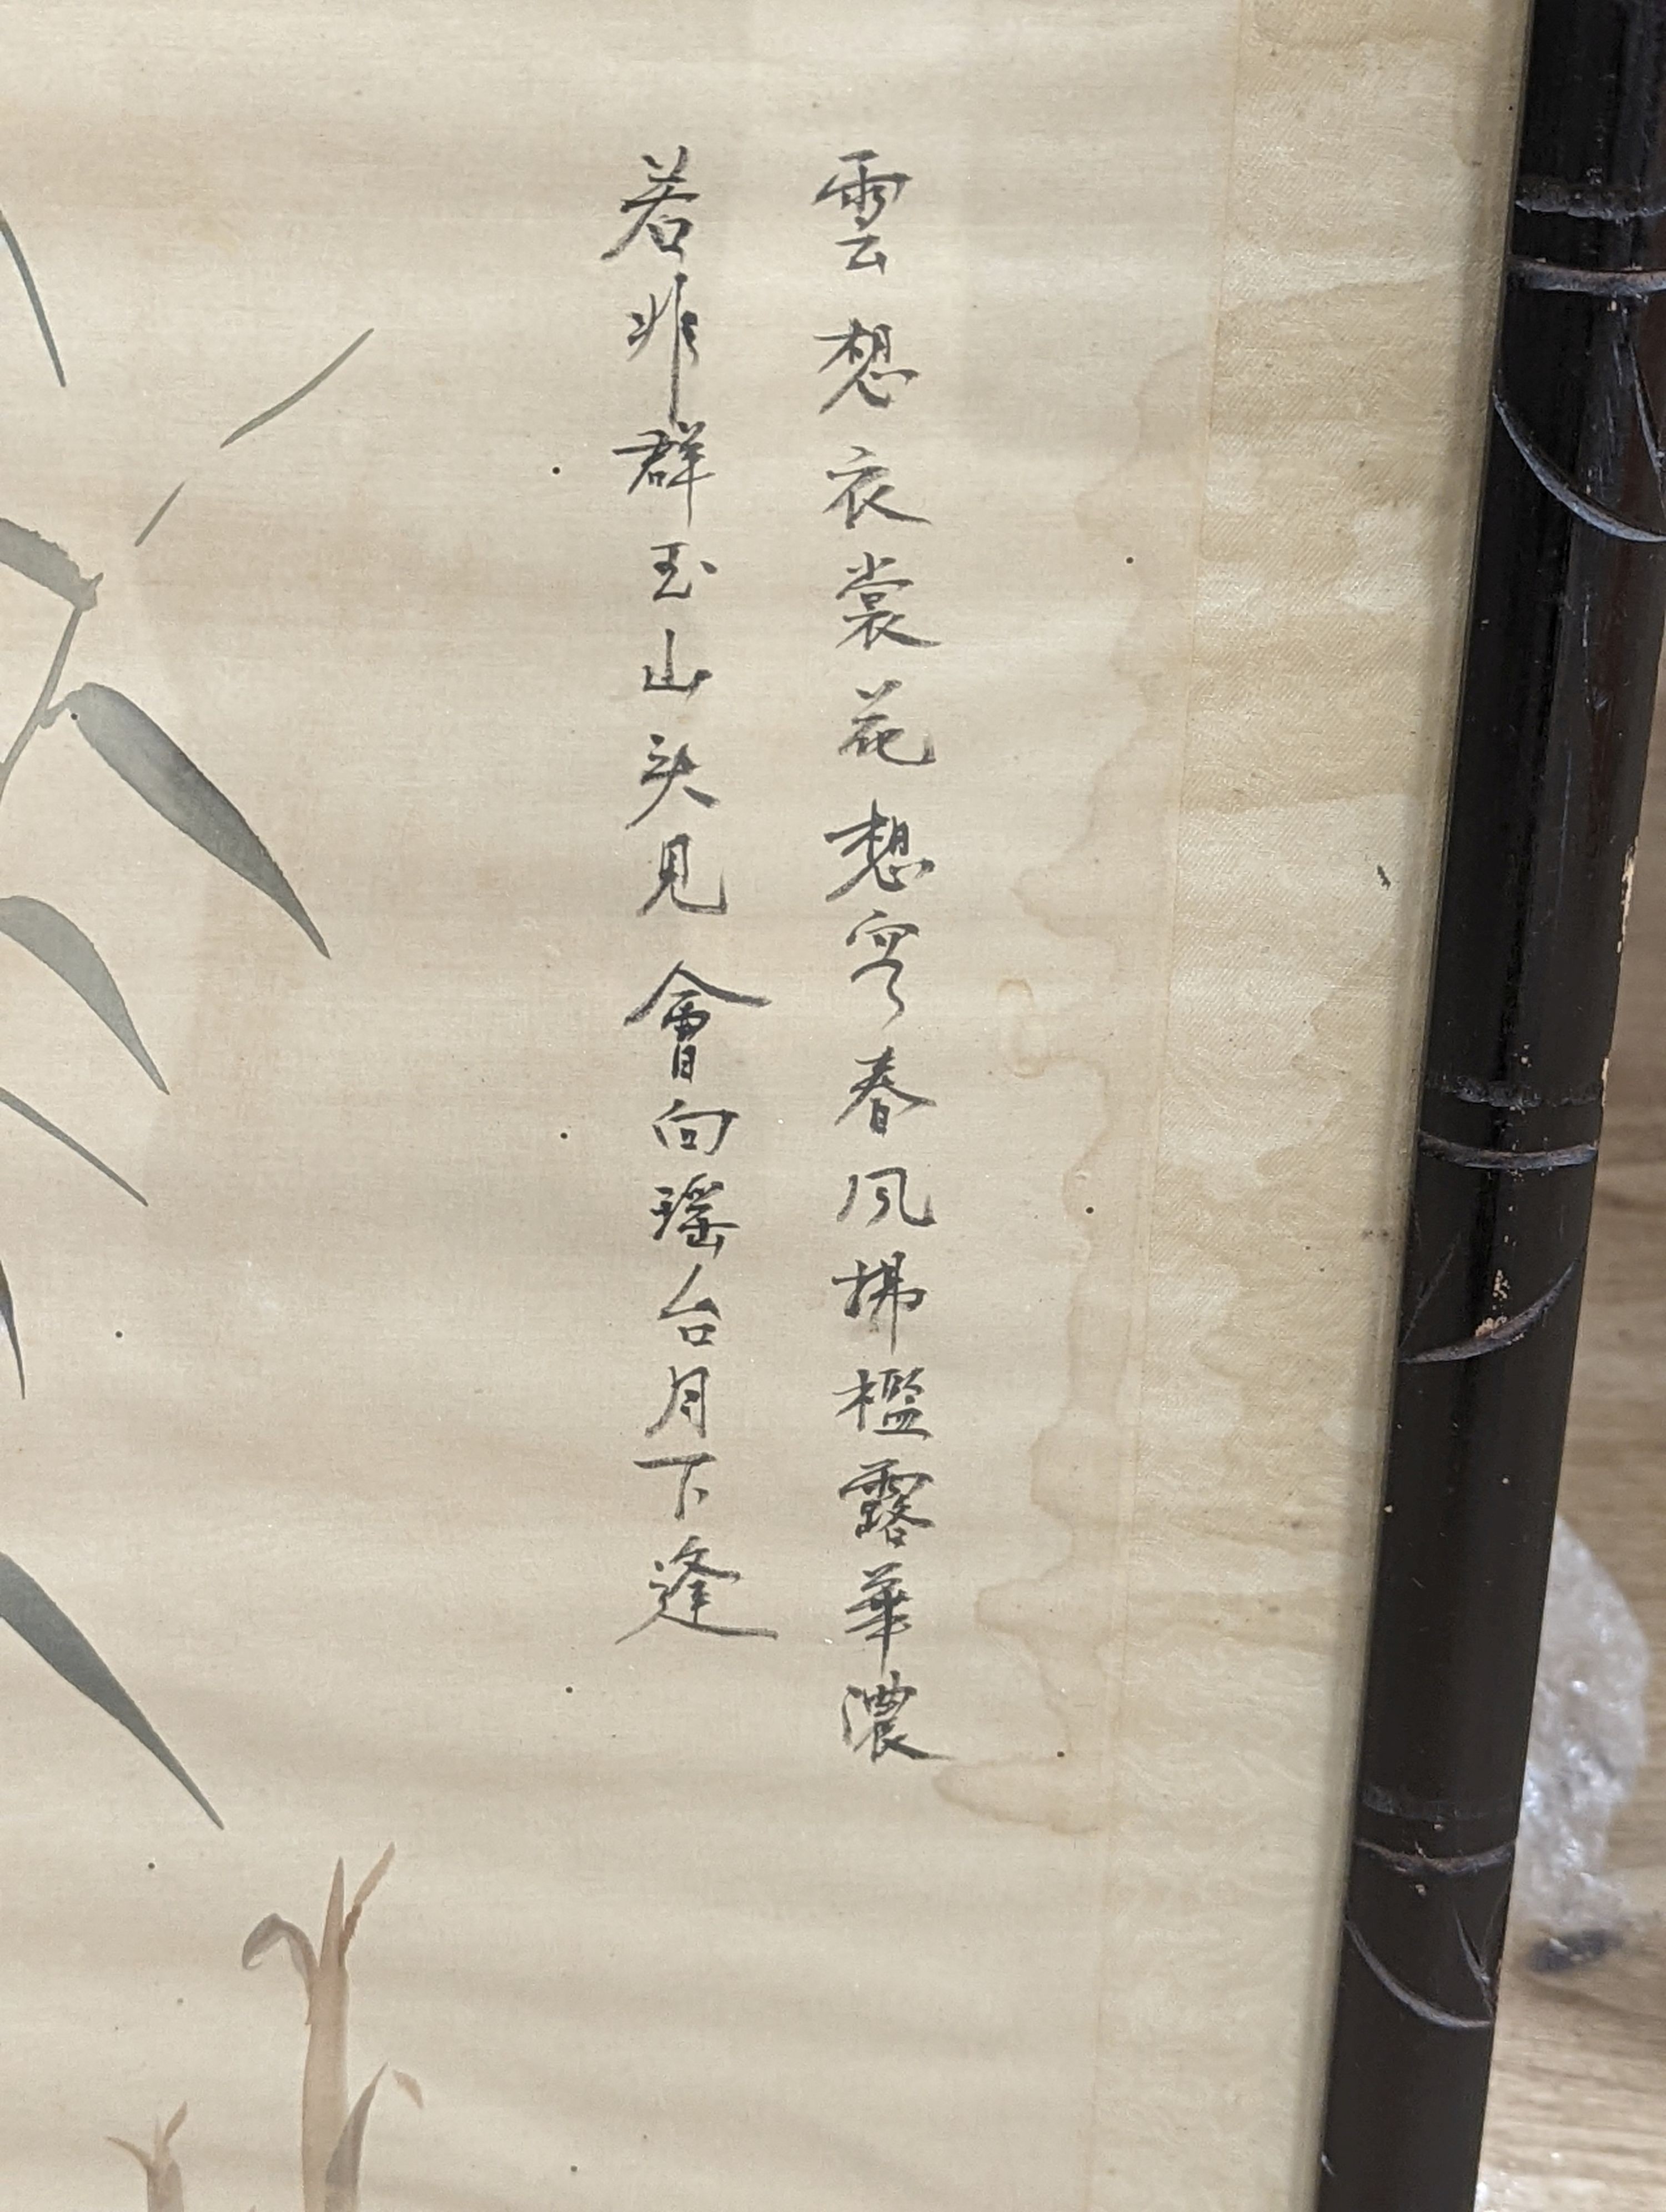 雲想衣裳花想容春風拂檻露華濃
若非群玉山头見會向瑶台月下逢